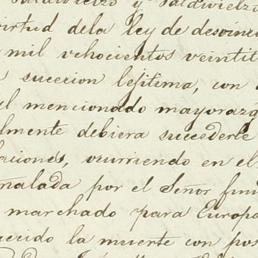 y Saldivielzo
virtud dela ley de desvincu
mil vchocientos veintit
a sucecion lejitima, con
el mencionado mayorazg
lmente debiera sucederle
laciones, osurriendo en el
nalada por el Señor fun
marchado para Europa
recido la muerte con pos